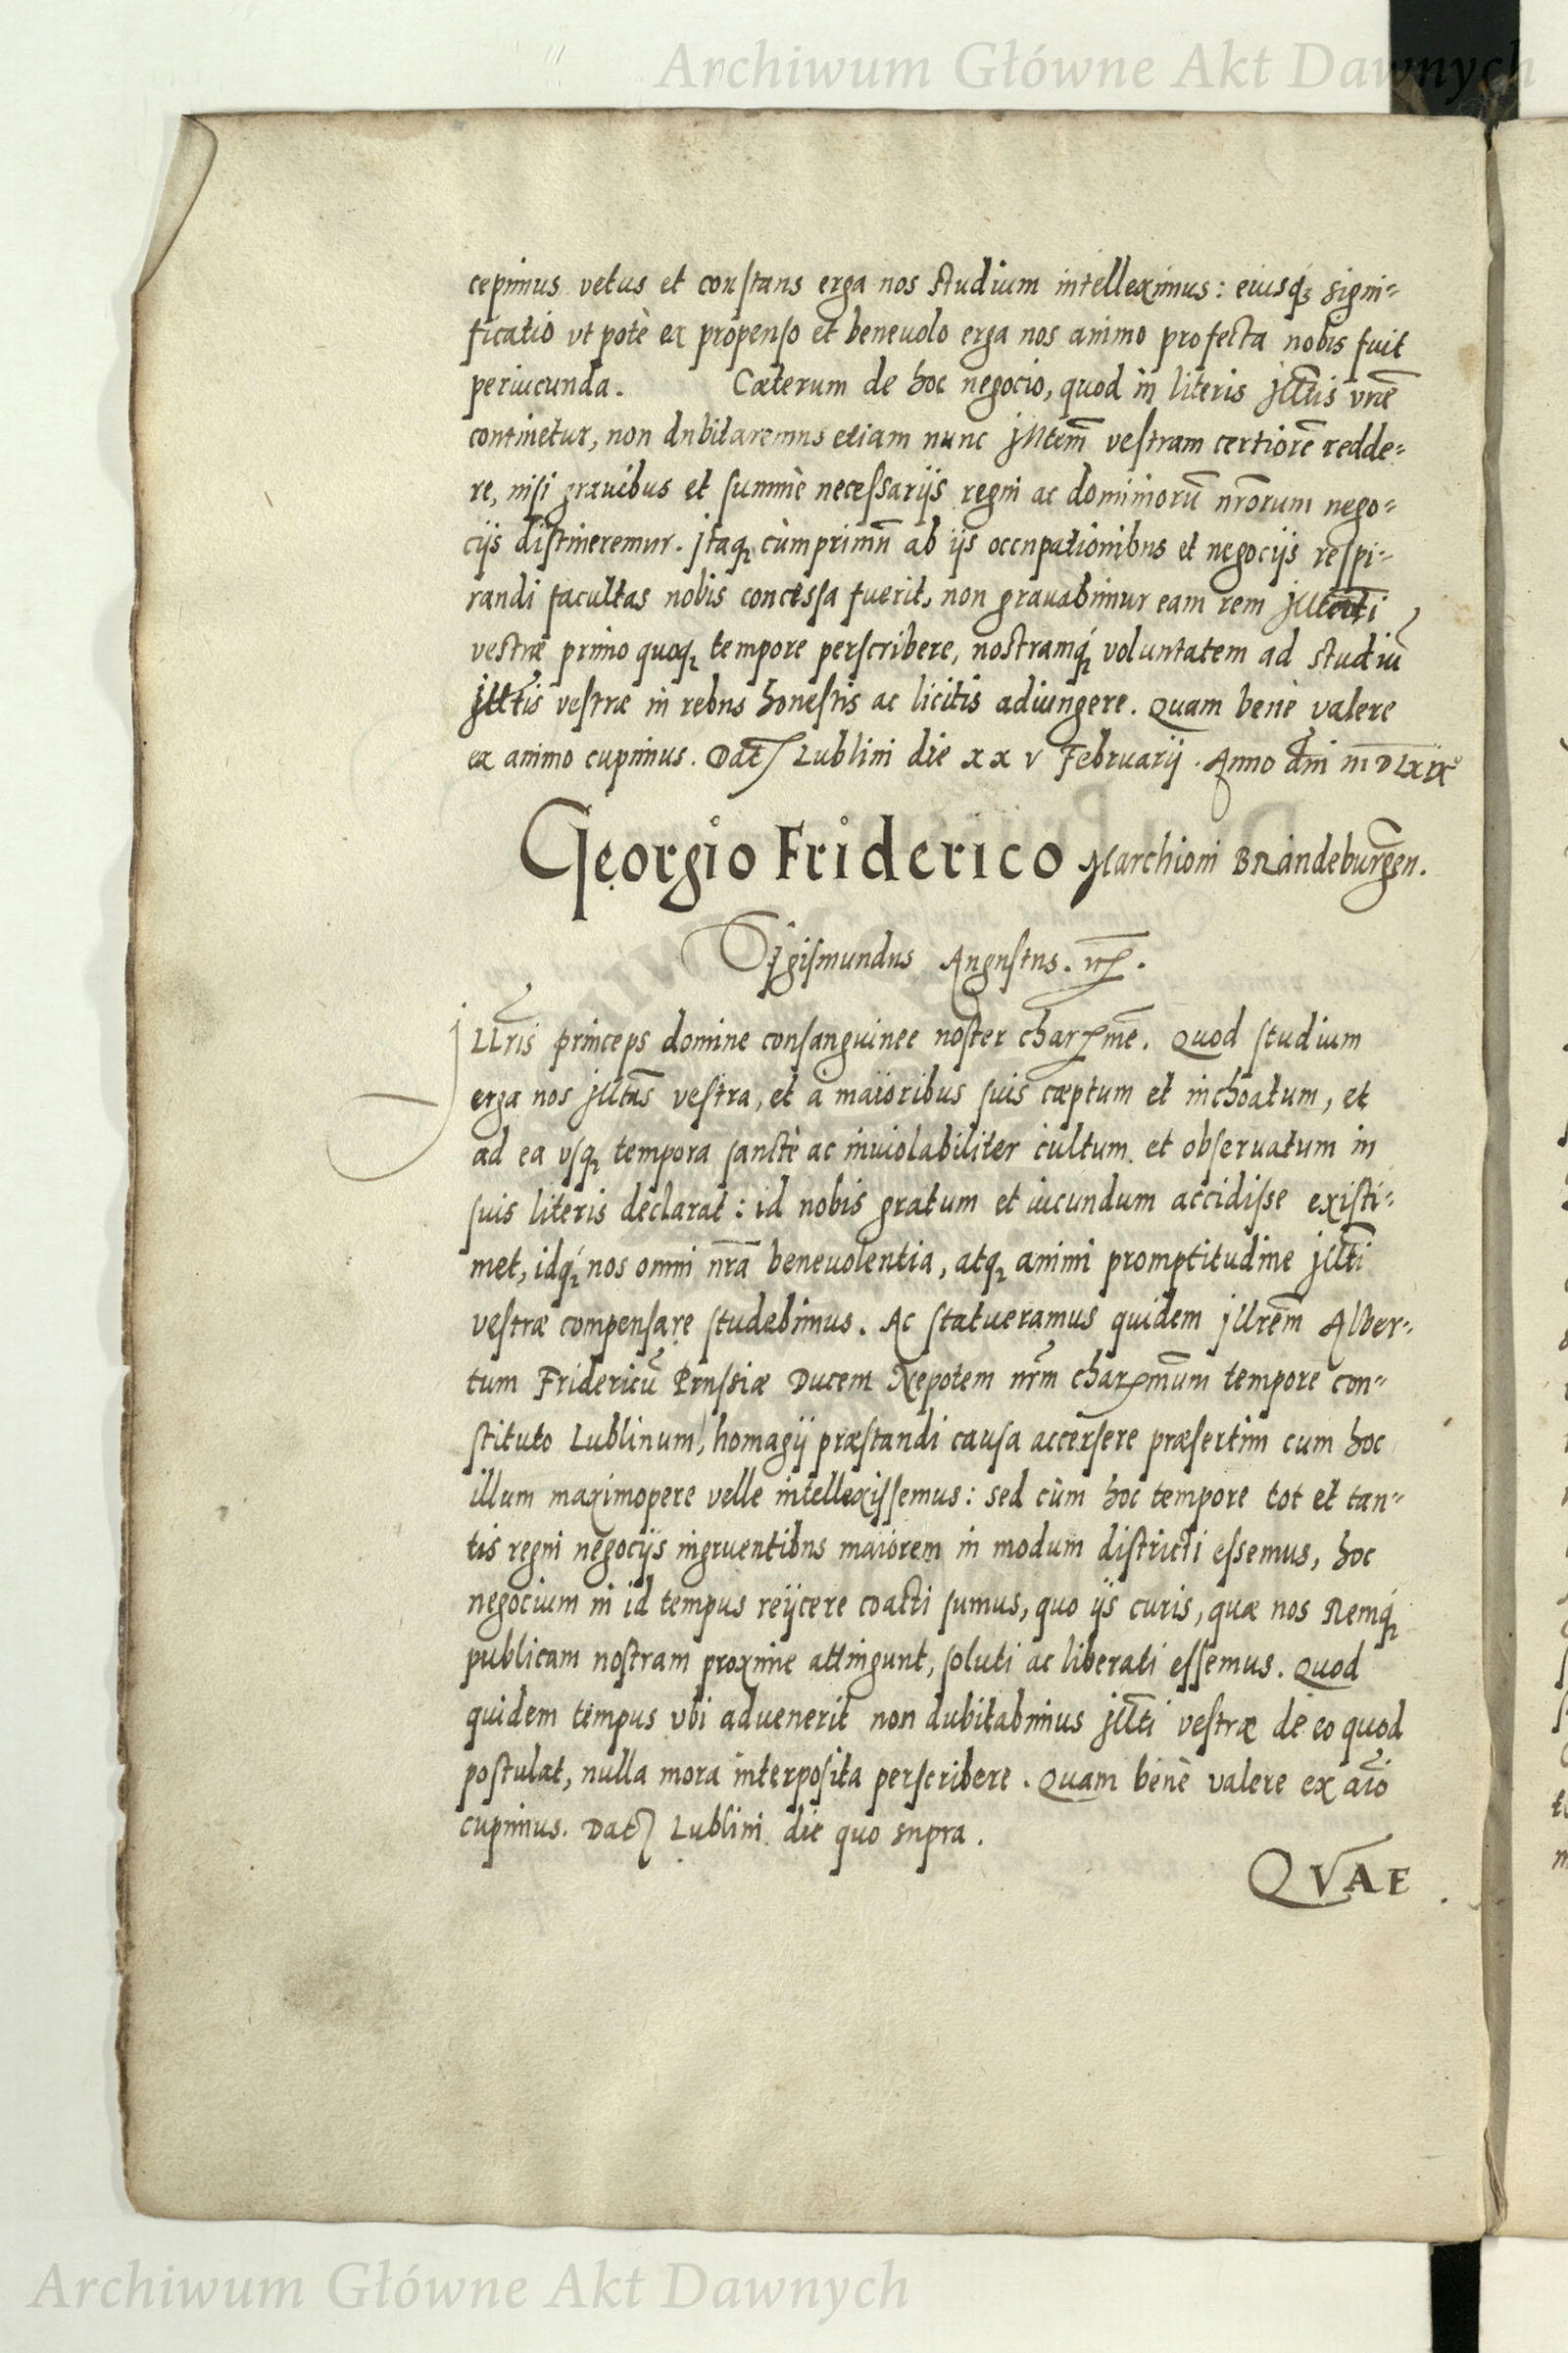 Archiwum Główne Akt Dawnych
cepimus vetus et constans erga nos studium intelleximus: eiusq́ꝫ signi=
ficatio vt potè ex propenso et beneuolo erga nos animo profecta nobis fuit
periucunda. Cæterum de hoc negocio, quod in literis Jllt̄is vr̄æ
continetur, non dubitaremus etiam nunc Jlltem̄ vestram certiorē redde=
re, nisi grauibus et summè necessarijs regni ac dominiorū nr̄orum nego=
cijs distineremur. Jtaqꝫ cùmprimū ab ijs occupationibus et negocijs respi=
randi facultas nobis concessa fuerit, non grauabimur eam rem Jllt̄ti
vestræ primo quoqꝫ tempore perscribere, nostramq́ꝫ voluntatem ad studiū
Jllt̄is vestræ in rebus honestis ac licitis adiungere. Quam benè valere
ex animo cupimus. Dat̄ Lublini die xxv Februarij. Anno dn̄i MDLXIX°
Georgio Friderico Marchioni Brandeburgen̄.
Sigismundus Augustus. rꝫ.
Jllr̄is princeps domine consanguinee noster charꝫmē. Quod studium
erga nos Jllt̄as vestra, et à maioribus suis cæptum et inchoatum, et
ad ea vsqꝫ tempora sanctè ac inuiolabiliter cultum et obseruatum in
suis literis declarat: id nobis gratum et iucundum accidisse existi=
met, idq́ꝫ nos omni nr̄a beneuolentia, atqꝫ animi promptitudine Jllt̄i
vestræ compensare studebimus. Ac statueramus quidem Jllrem̄ Alber=
tum Fridericū Prussiæ Ducem Nepotem nr̄m charꝫmūm tempore con=
stituto Lublinum, homagij præstandi causa accersere præsertim cum hoc
illum maximopere velle intellexissemus: sed cùm hoc tempore tot et tan=
tis regni negocijs ingruentibus maiorem in modum districti essemus, hoc
negocium in id tempus reijcere coacti sumus, quo ijs curis, quæ nos Remq́ꝫ
publicam nostram proxime attingunt, soluti ac liberati essemus. Quod
quidem tempus vbi aduenerit non dubitabimus Jllt̄i vestræ de eo quod
postulat, nulla mora interposita perscribere. Quam benè valere ex aīo
cupimus. Dat̄ Lublini die quo supra.
QVAE
Archiwum Główne Akt Dawnych